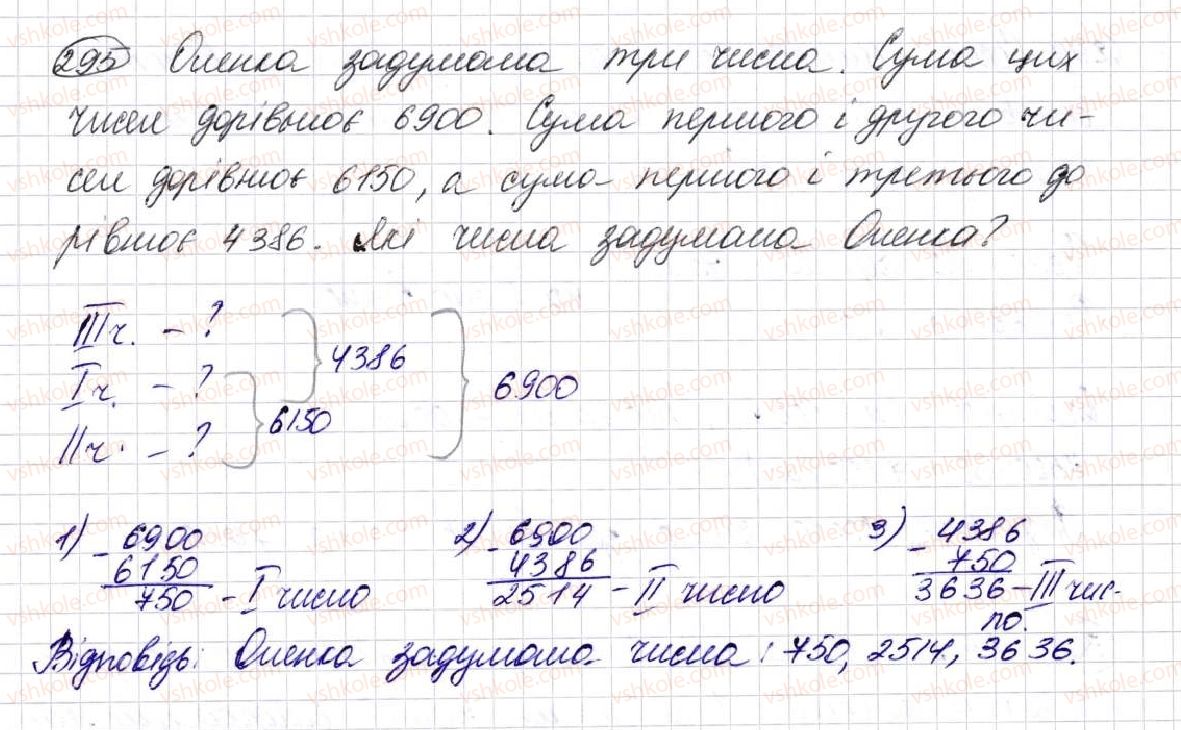 295 Оленка задумала три числа. Сума цих
чисел дорівнює 6900. Сума першого і другого чи-
сел дорівнює 6150, а сума першого і третього до
рівнює 4386. Які числа задумала Оленка?
IIIч. - ?
4386
Iч. - ?
6900
6150
IIч. - ?
1) - 6900
6150
750 - I число
2) - 6900
4386
2514 - II число
3) - 4386
750
3636 - III чис-
ло.
Відповідь: Оленка задумала числа: 750, 2514, 3636.